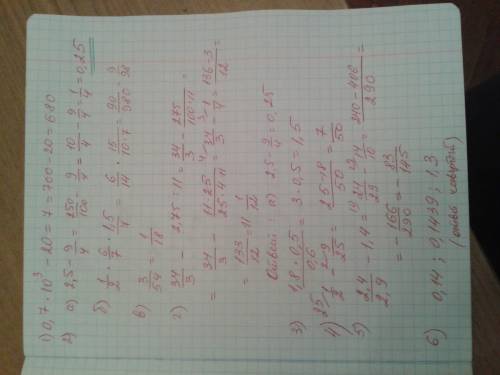 1) 0,7 · 10³ - 20 = 7 = 700 - 20 = 680
2) а) 2,5 - 9/4 = 250/100 - 9/4 = 10/4 - 9/4 = 1/4 = 0,25
б) 1/2 · 6/7 · 1,5/4 = 6/14 · 15/10·7 = 90/980 = 9/98
в) 3/54 = 1/18
г) 34/3 - 2,75 : 11 = 34/3 - 275/100·11 =
= 34/3 - 11·25/25·4·11 = 34/3 - 1/4 = 136-3/12 =
= 133/12 = 11 1/12
Ответ: а) 2,5 - 9/4 = 0,25
3) 1,8 · 0,5/0,6 = 3 · 0,5 = 1,5
4) 1/2 - 9/25 = 25-18/50 = 7/50
5) 2,4/2,9 - 1,4 = 24/29 - 14/10 = 240-406/290 =
= - 166/290 = - 83/145
6) 0,14 ; 0,1439 ; 1,3